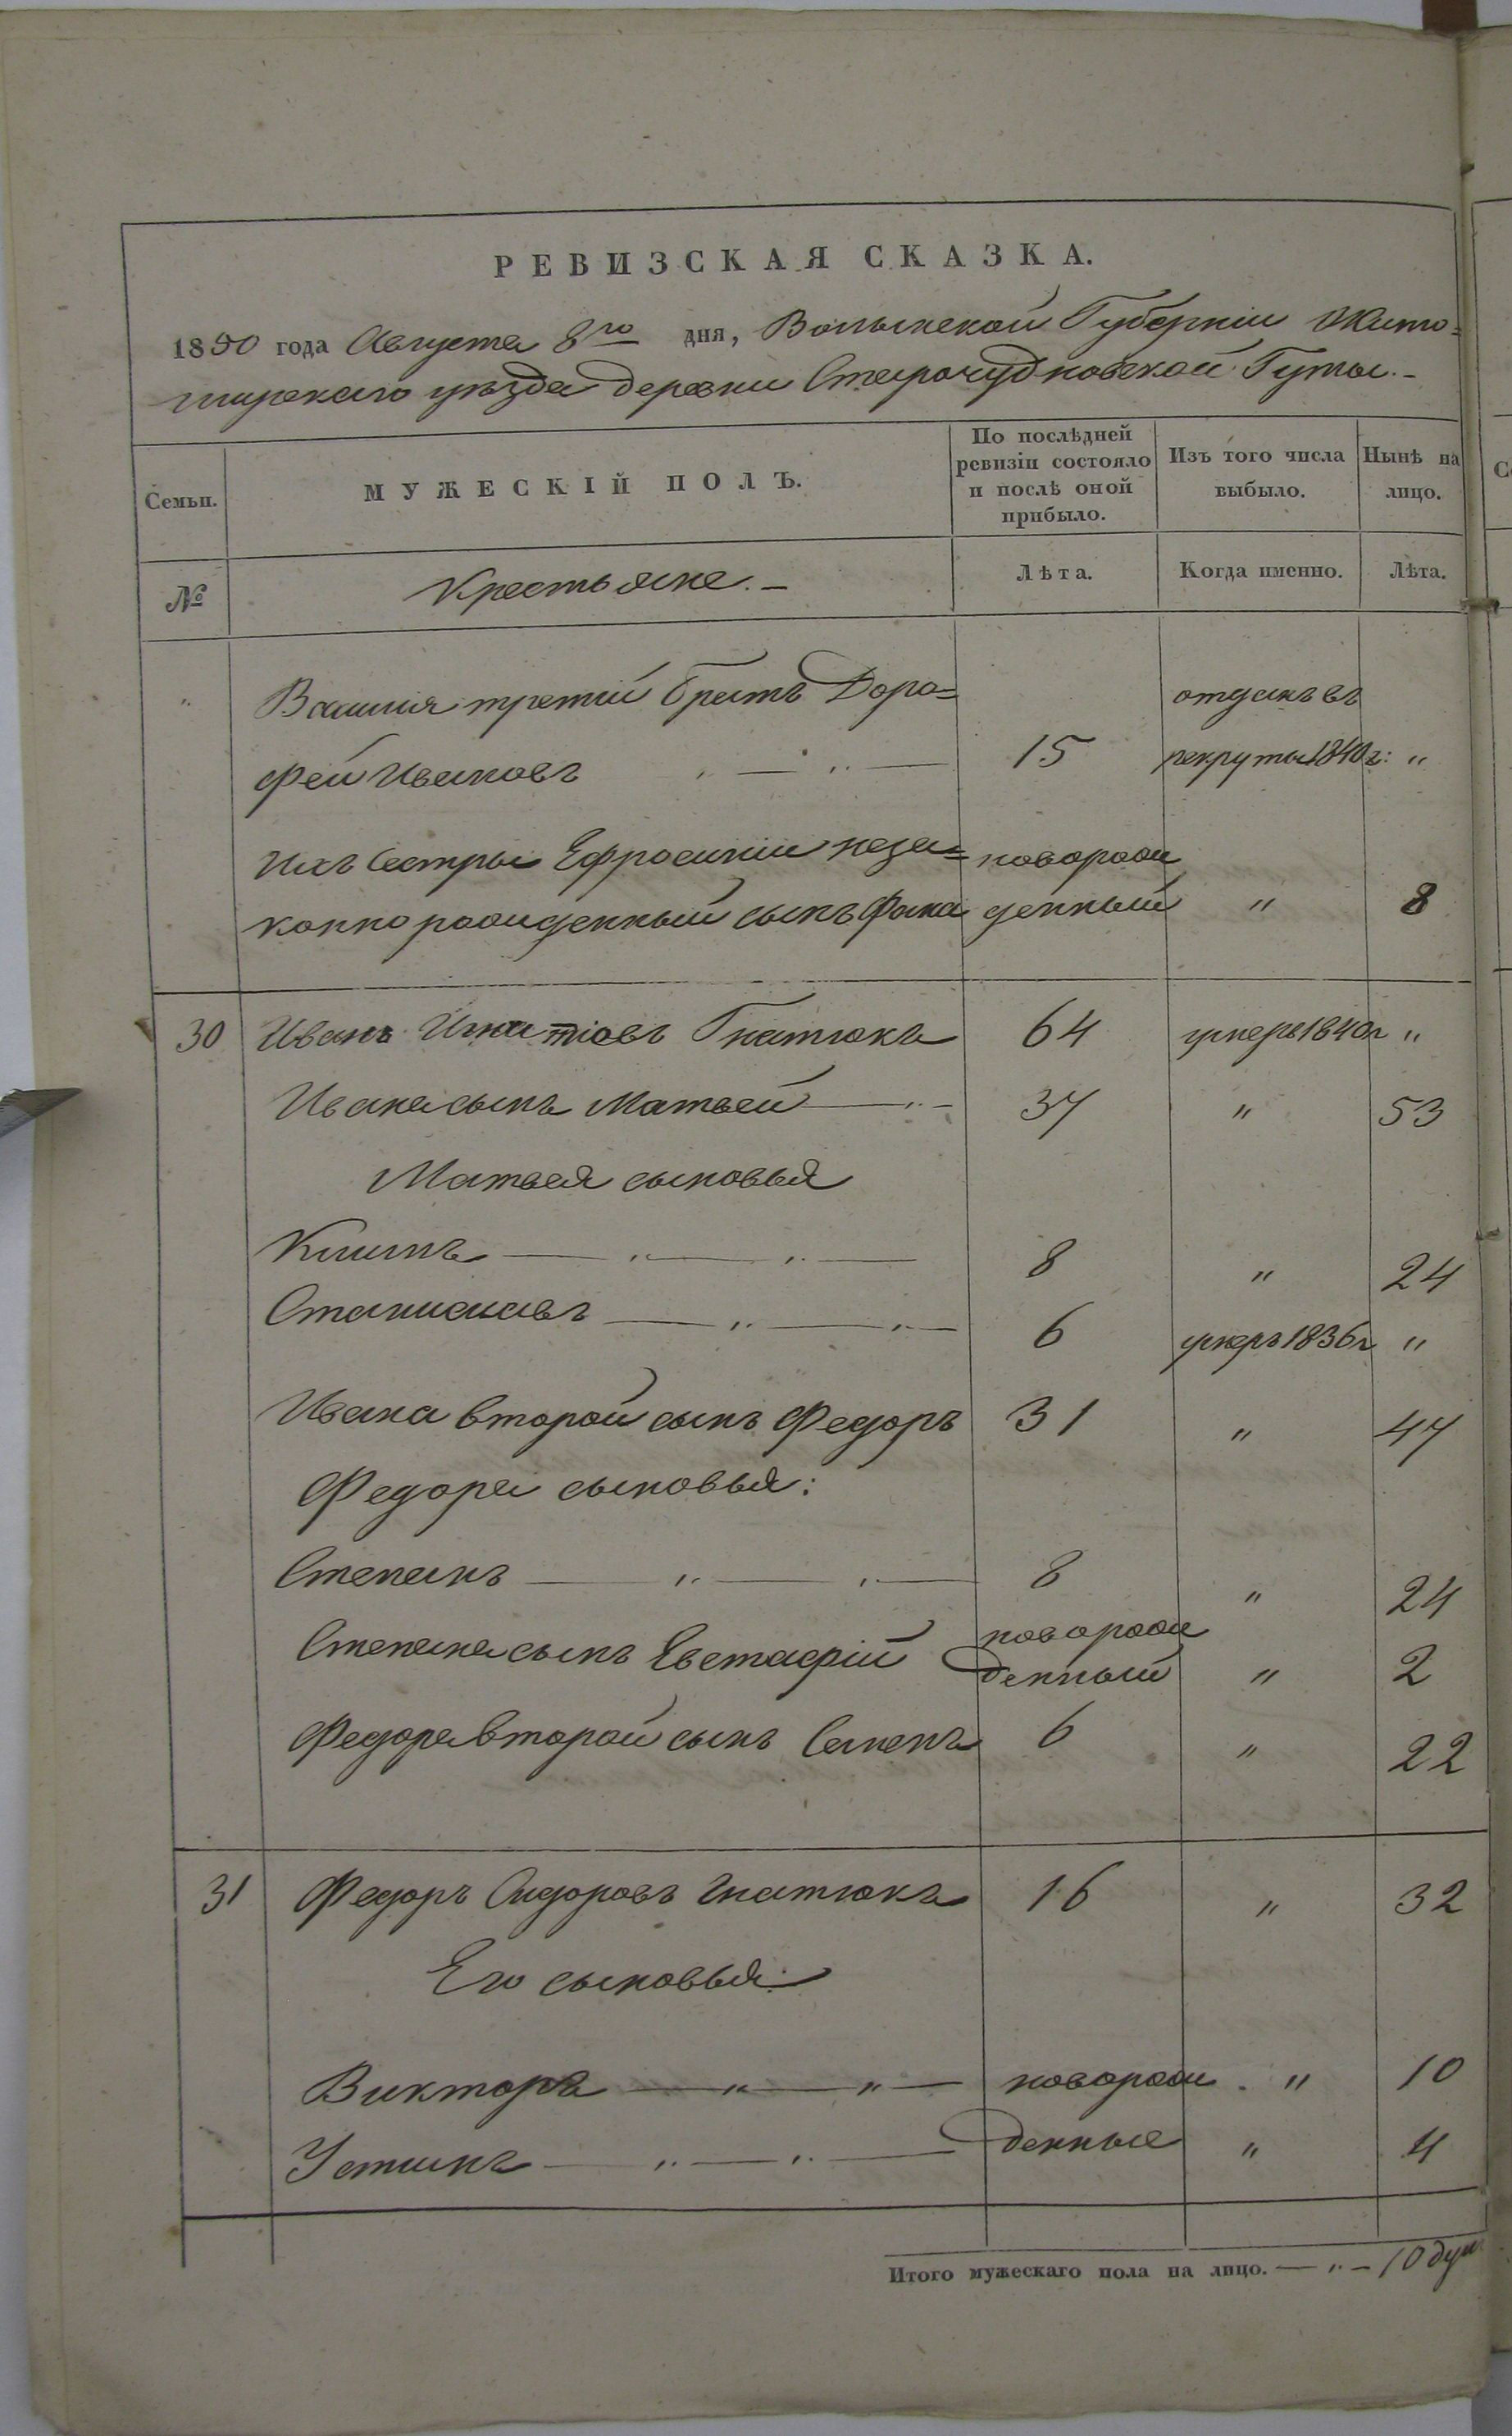 РЕВИЗСКАЯ СКАЗКА.
1850 года Августа 8го дня, Волынской Губерніи Жито=
мирскаго уѣзда деревни Старочудновской Гуты.-
Семьи. МУЖЕСКІЙ ПОЛЪ. По послѣдней ревизіи состояло и послѣ оной прибыло. Изъ того числа выбыло. Нынѣ на лицо.
№ Крестьяне.- Лѣта. Когда именно. Лѣта.
" Василія третій братъ Доро= отданъ въ
фей Ивановъ " 15 рекруты 1840 г: "
Ихъ Сестры Ефросиніи неза= новорож
конно рожденный сынъ Фома денный " 8
30 Иванъ Игнатіовъ Гнатюкъ 64 умеръ 1840 г "
Ивана сынъ Матвей " 37 " 53
Матвея сыновья
Климъ " " 8 " 24
Станиславъ " " 6 умеръ 1836 г "
Ивана второй сынъ Федоръ 31 " 47
Федора сыновья:
Степанъ " " 8 " 24
Степана сынъ Евстафій новорож
денный " 2
Федора второй сынъ Семенъ 6 " 22
31 Федоръ Сидоровъ Гнатюкъ 16 " 32
Его сыновья:
Викторъ " " новорож " 10
Устинъ " " денные " 4
Итого мужескаго пола на лицо. " 10 душ